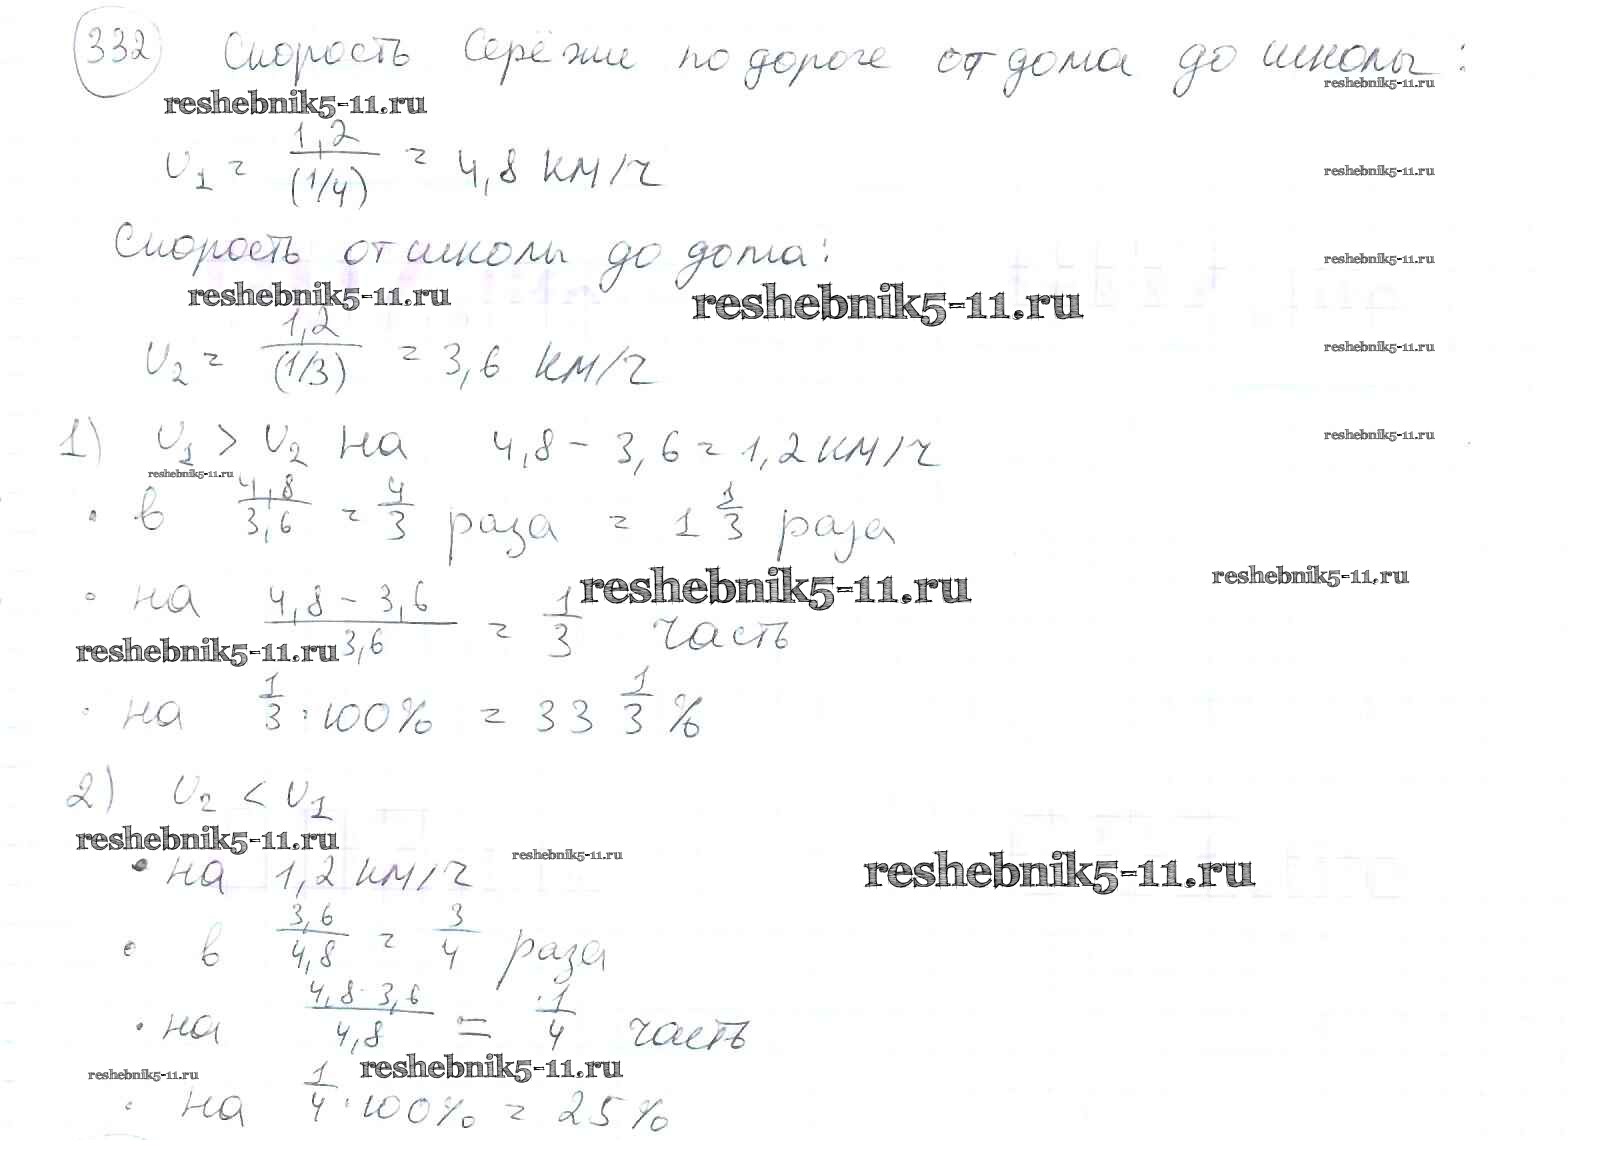 332 Скорость Серёжи по дороге от дома до школы:
reshebnik5-11.ru
reshebnik5-11.ru
υ₁ = 1,2/(1/4) = 4,8 км/ч
reshebnik5-11.ru
Скорость от школы до дома:
reshebnik5-11.ru
reshebnik5-11.ru
reshebnik5-11.ru
υ₂ = 1,2/(1/3) = 3,6 км/ч
reshebnik5-11.ru
1) υ₁ > υ₂ на 4,8 - 3,6 = 1,2 км/ч
reshebnik5-11.ru
reshebnik5-11.ru
• в 4,8/3,6 = 4/3 раза = 1 1/3 раза
reshebnik5-11.ru
reshebnik5-11.ru
• на (4,8 - 3,6)/3,6 = 1/3 часть
reshebnik5-11.ru
• на 1/3 · 100% = 33 1/3 %
2) υ₂ < υ₁
reshebnik5-11.ru
reshebnik5-11.ru
reshebnik5-11.ru
• на 1,2 км/ч
• в 3,6/4,8 = 3/4 раза
• на (4,8 - 3,6)/4,8 = 1/4 часть
reshebnik5-11.ru
reshebnik5-11.ru
• на 1/4 · 100% = 25%